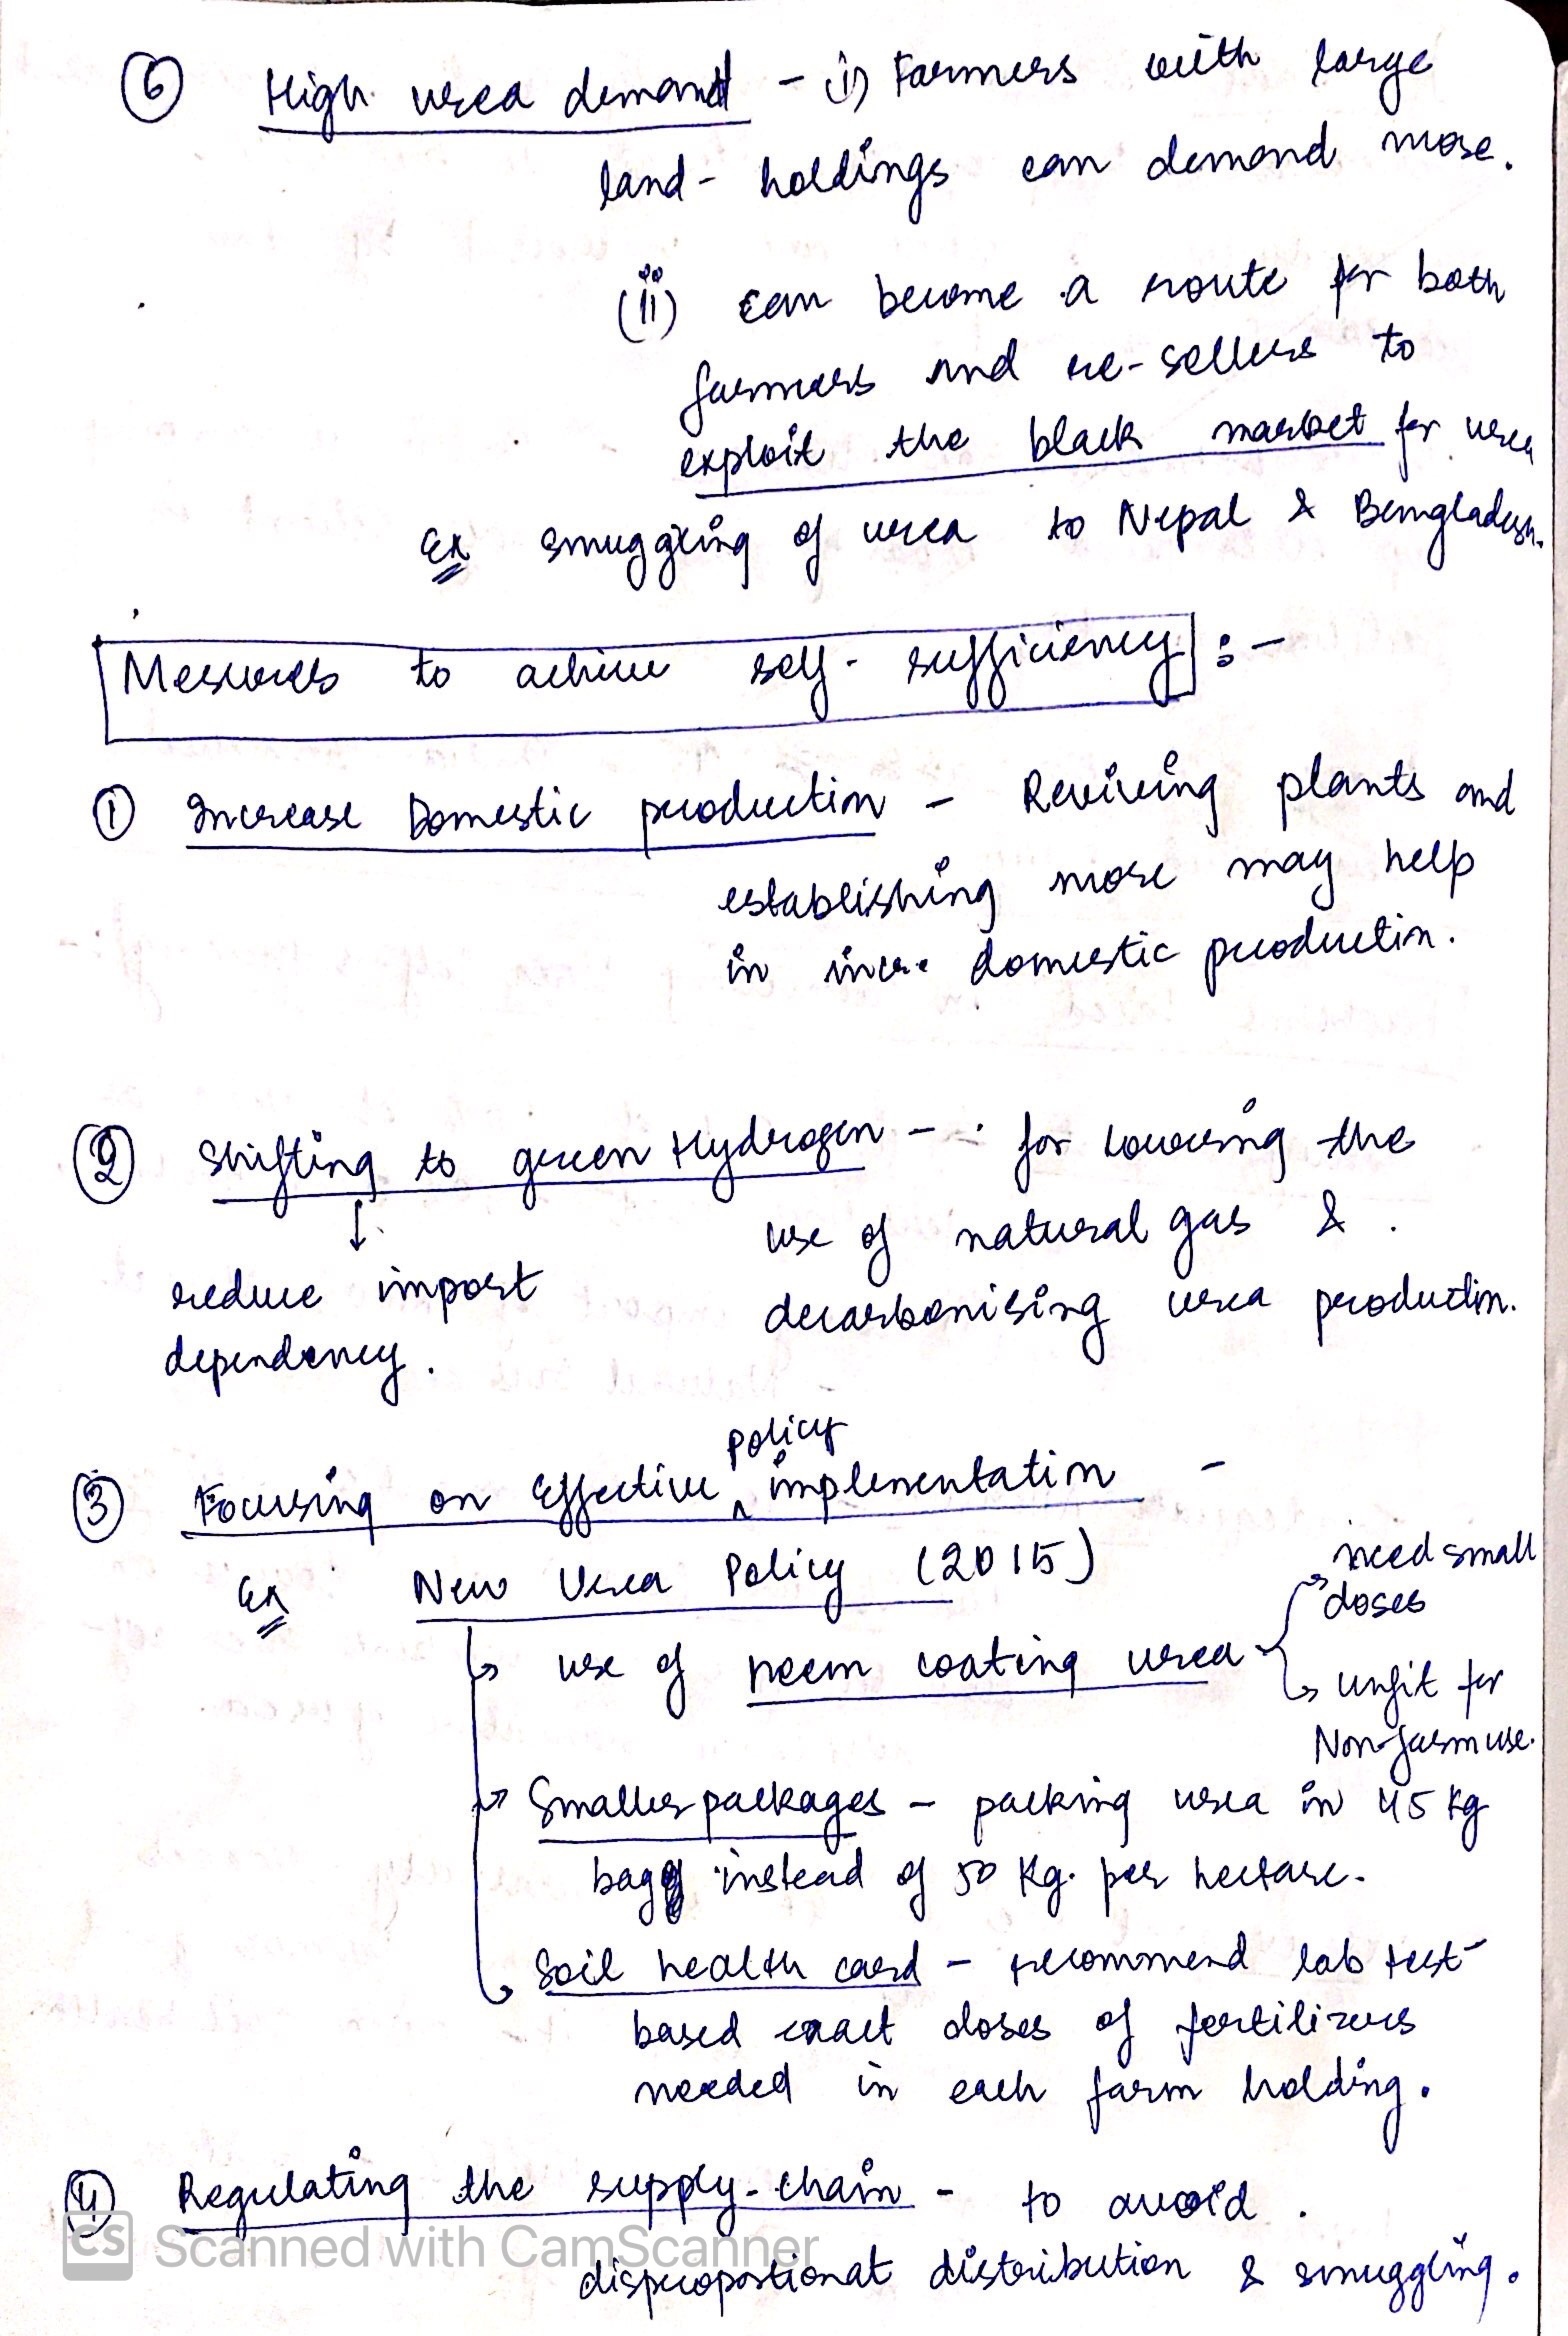 ⑥ High urea demand - (i) Farmers with large
land- holdings can demand more.
(ii) can become a route for both
farmers and re-sellers to
exploit the black market for urea
Ex smuggling of urea to Nepal & Bangladesh.
Mesures to achive self- sufficiency :-
① Increase Domestic production - Reviving plants and
establishing more may help
in incre. domestic production.
② Shifting to green Hydrogen - for lowering the
use of natural gas &
↓
reduce import
decarbonising urea production.
dependency.
policy
③ Focusing on Effective ^ implementation -
Ex New Urea Policy (2015)
need small
doses
↳ use of neem coating urea
↳ unfit for
Non-farm use.
→ Smaller packages - packing urea in 45 kg
bag instead of 50 Kg. per hectare.
↳ Soil health card - recommend lab test-
based exact doses of fertilizers
needed in each farm holding.
④ Regulating the supply-chain - to avoid
CS Scanned with CamScanner
disproportionat distribution & smuggling.